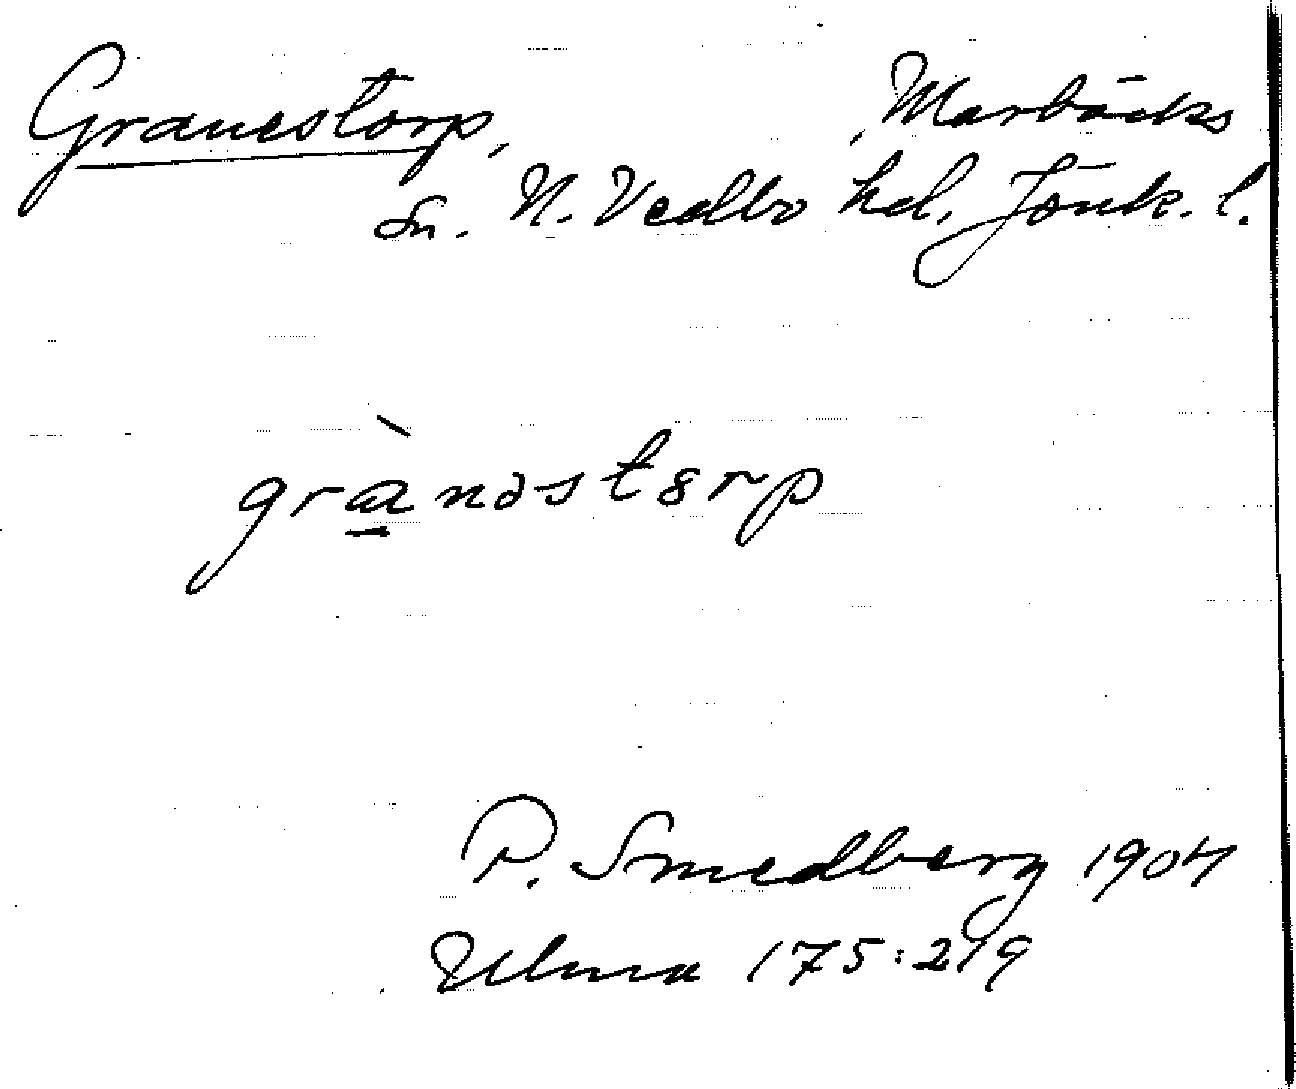 Granestorp, Marbäcks
Sn. N. Vedbo hd. Jönk. l.
grànəstȣrp
P. Smedberg 1904
Ulma 175:219